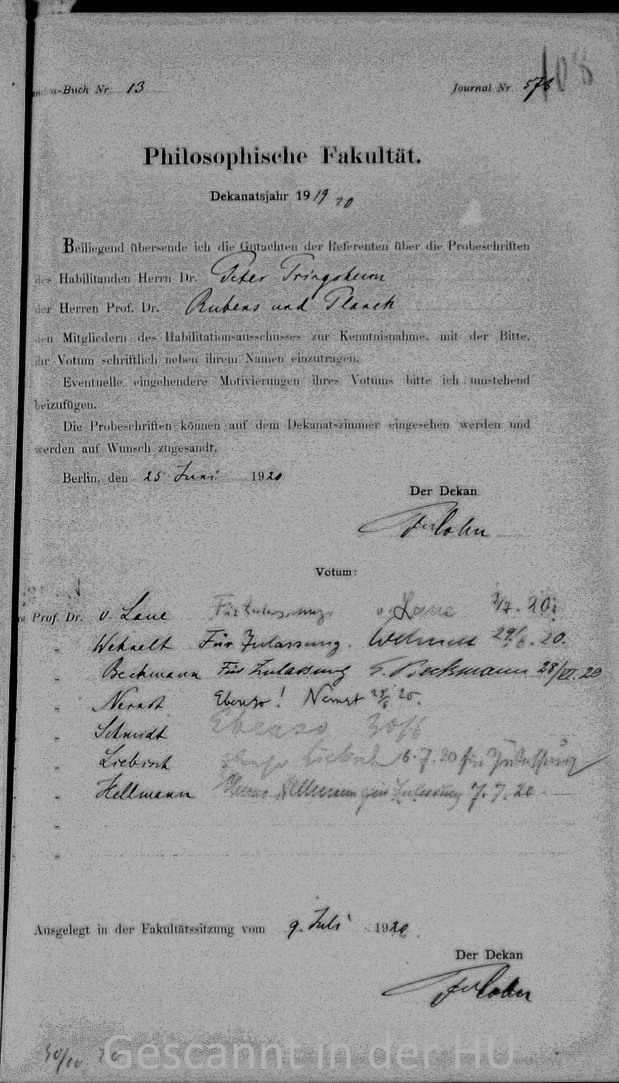 -Buch Nr. 13 Journal Nr. 578
108
Philosophische Fakultät.
Dekanatsjahr 1919 20
Beiliegend übersende ich die Gutachten der Referenten über die Probeschriften
des Habilitanden Herrn Dr. Peter Pringsheim
der Herren Prof. Dr. Rubens und Planck
den Mitgliedern des Habilitationsausschusses zur Kenntnisnahme, mit der Bitte,
ihr Votum schriftlich neben ihrem Namen einzutragen.
Eventuelle eingehendere Motivierungen ihres Votums bitte ich umstehend
beizufügen.
Die Probeschriften können auf dem Dekanatszimmer eingesehen werden und
werden auf Wunsch zugesandt.
Berlin, den 25 Juni 1920
Der Dekan
Votum:
Prof. Dr. v. Laue Für Zulassung. v. Laue 2/7. 20.
" Wehnelt Für Zulassung. Wehnelt 29/6. 20.
" Beckmann Für Zulassung E. Beckmann 28/VI. 20
" Nernst Ebenso! Nernst 20.
" Schmidt Ebenso 30/6
" Liebisch Liebisch 6. 7. 20 für Zulassung
" Hellmann Hellmann für Zulassung 7. 7. 20
"
"
Ausgelegt in der Fakultätssitzung vom 9. Juli 1920.
Der Dekan
Gescannt in der HU